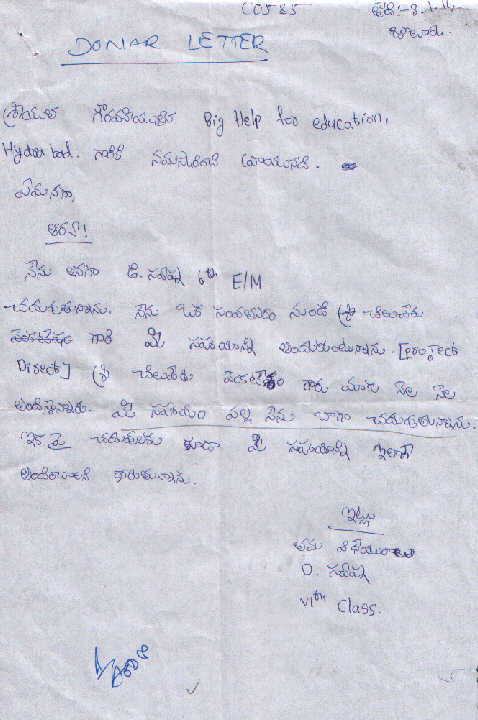 C0585
తేది:-
DONAR LETTER
శ్రీయుత గౌరవనీయులైన Big Help for education,
Hyderabad. గారికి నమస్కారించి వ్రాయునది.
ఏమనగా,
ఆర్యా!
నేను అనగా డి. స్వప్న 6th E/M
చదువుతున్నాను. నేను ఒక సంవత్సరం నుండి శ్రీ
గారి మీ సహాయాన్ని అందుకుంటున్నాను. [project
Direct] శ్రీ గారు మాకు నెల నెల
అందిస్తున్నారు. మీ సహాయం వల్ల నేను బాగా చదువుతున్నాను.
ఇక పై చదువులకు కూడా మీ సహాయాన్ని ఇలాగే
అందించాలని కోరుతున్నాను.
ఇట్లు
తమ విధేయురాలు
D. స్వప్న
VIth Class.